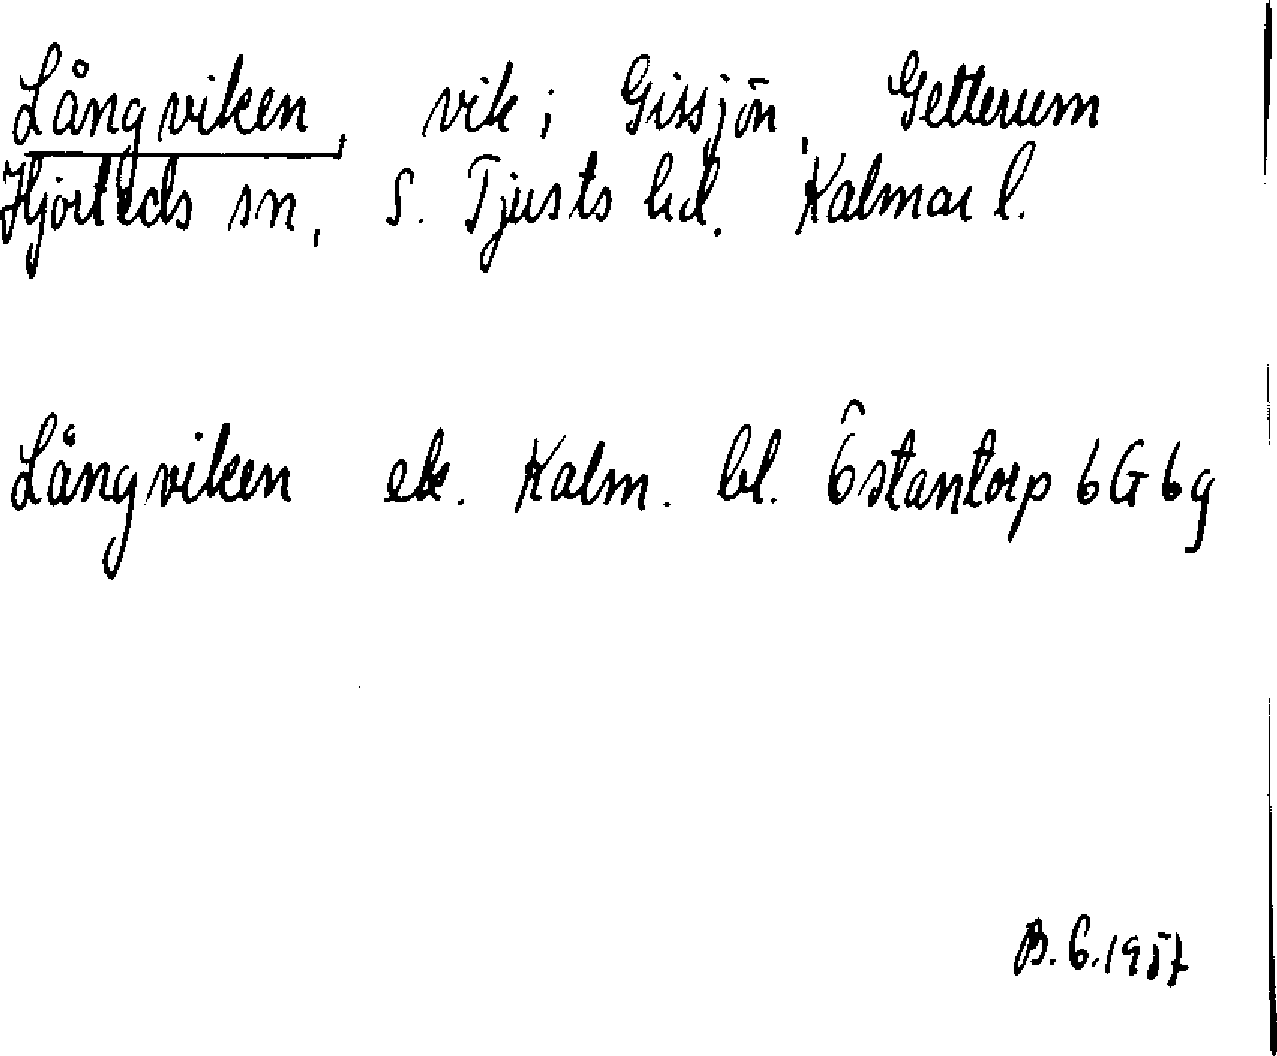 Långviken, vik i Gissjön, Getterum
Hjorteds sn, S. Tjusts hd. Kalmar l.
Långviken ek. Kalm. bl. Östantorp 6G 6g
B. G. 1957